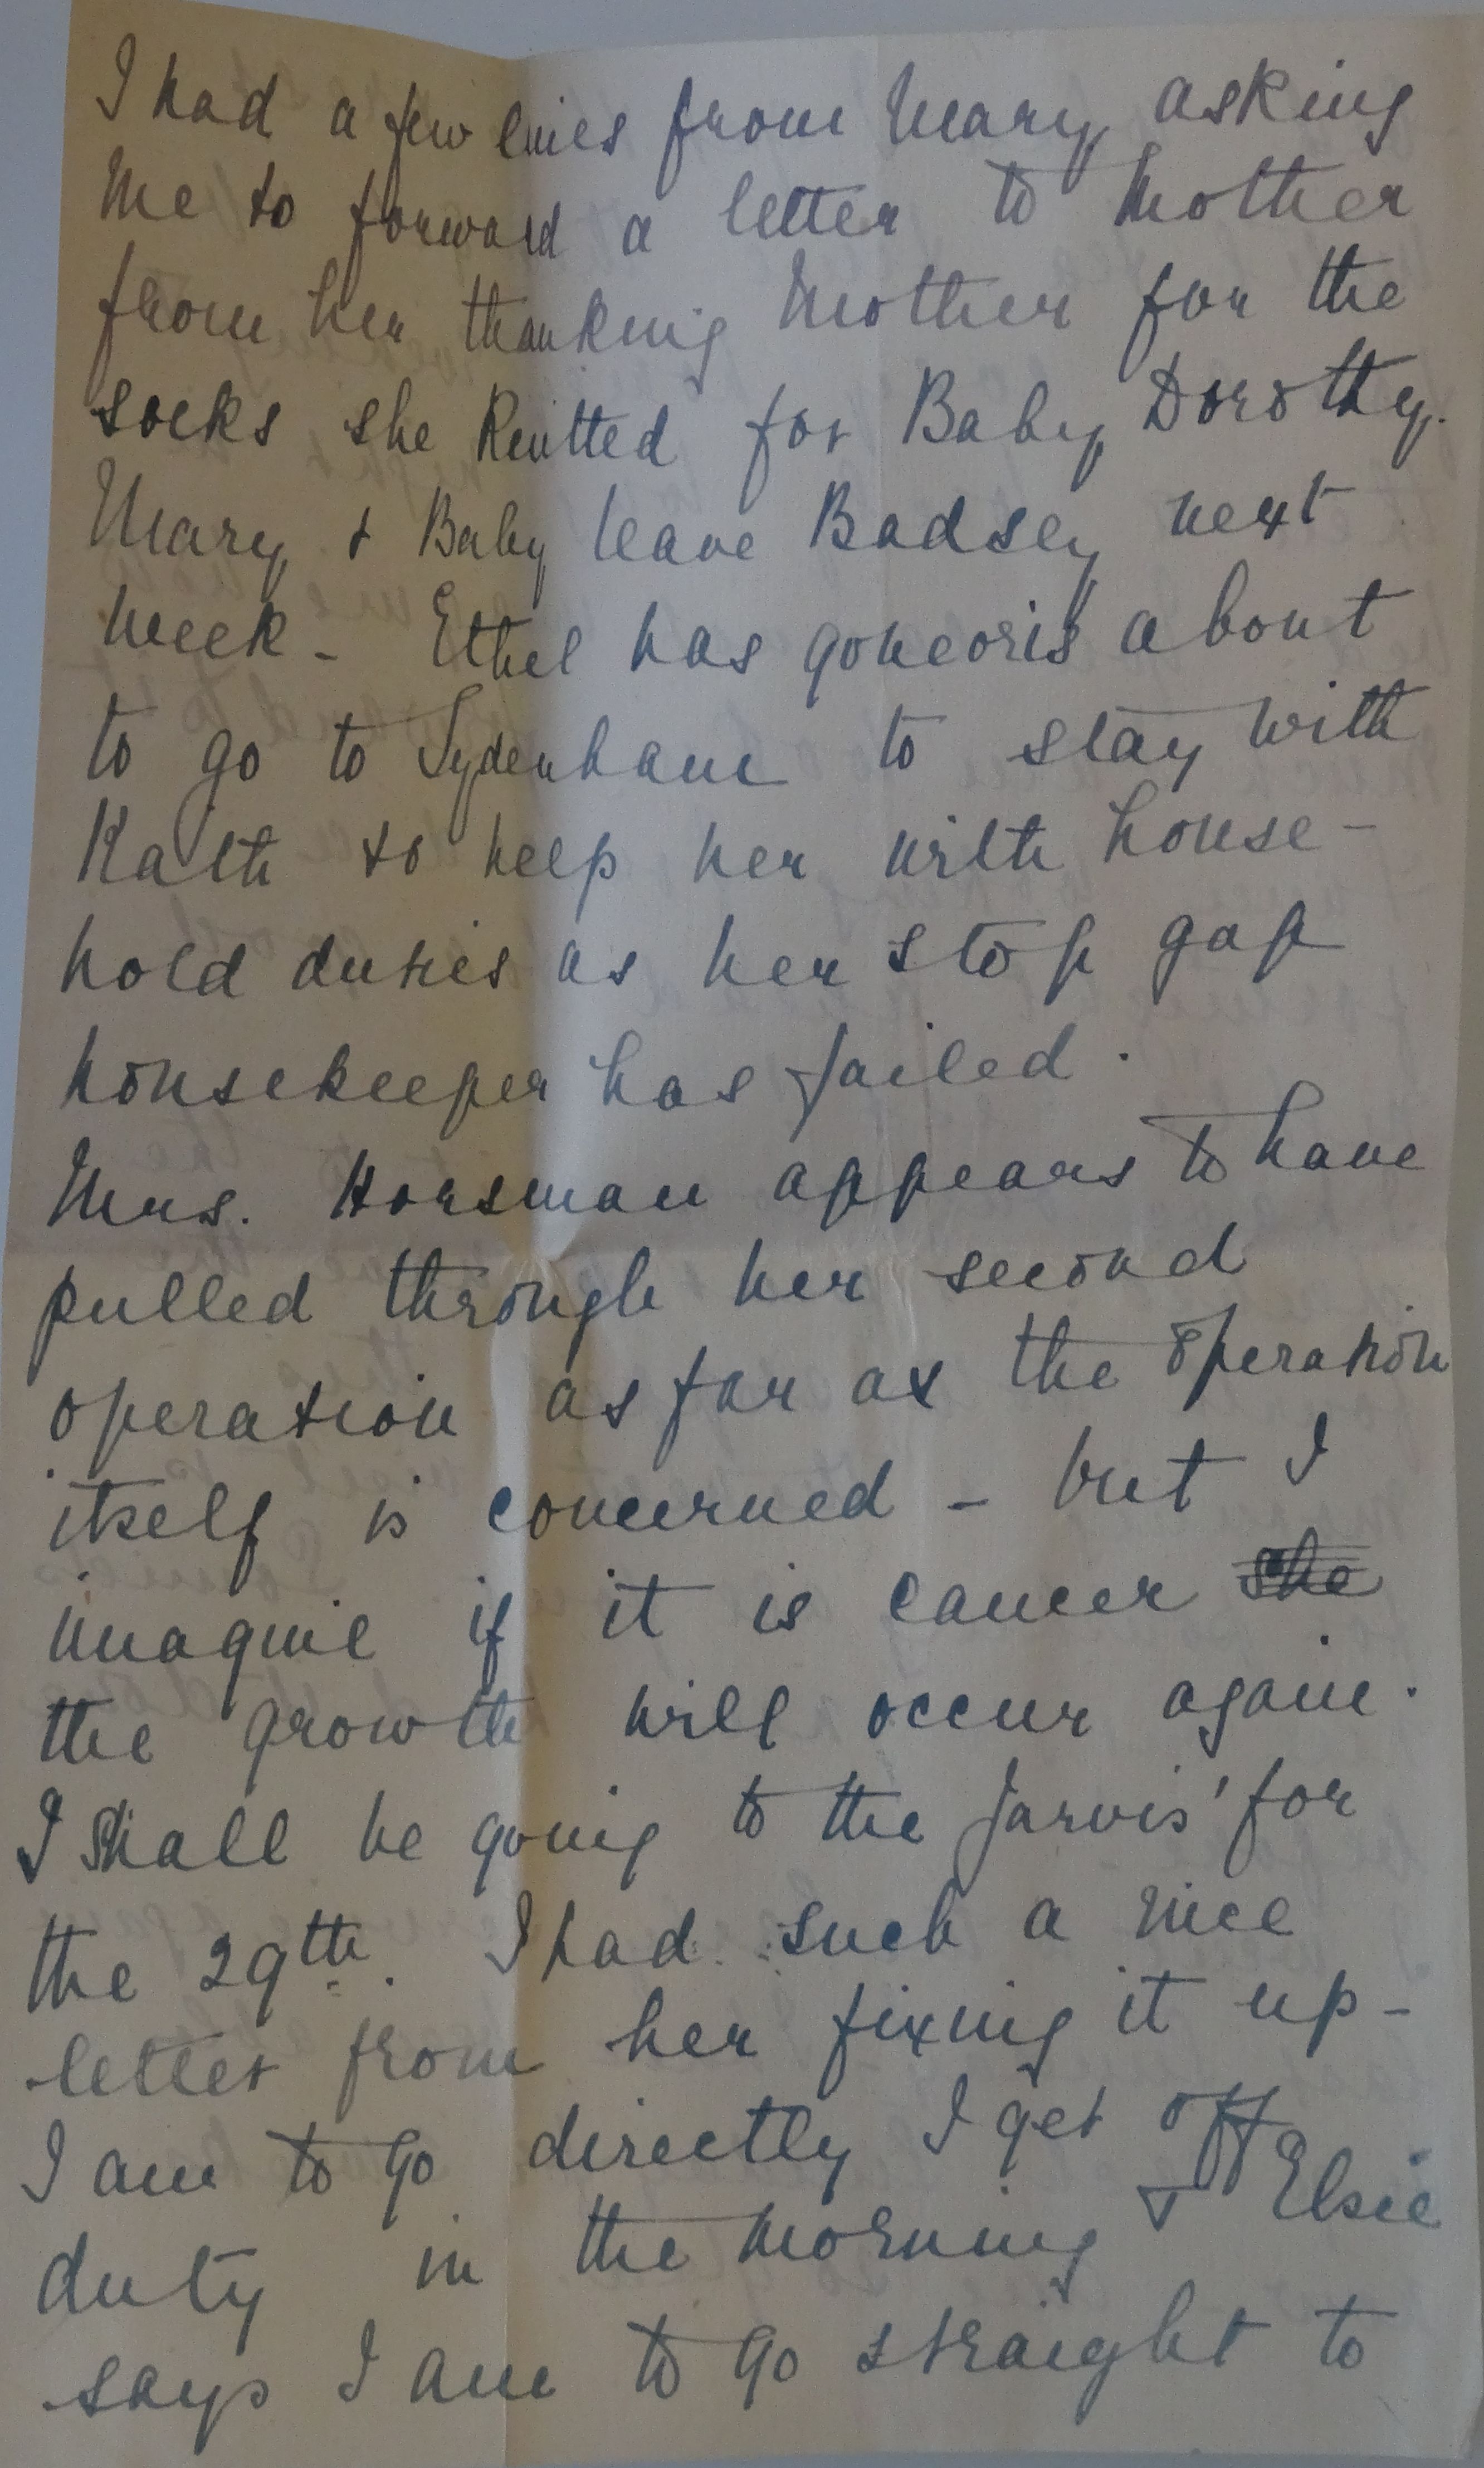 I had a few lines from Mary asking
me to forward a letter to Mother
from her thanking Mother for the
socks she knitted for Baby Dorothy.
Mary & Baby leave Badsey next
week - Ethel has gone or is about
to go to Sydenham to stay with
Kath to help her with house-
hold duties as her stop gap
housekeeper has failed.
Mrs. Horsman appears to have
pulled through her second
operation as far as the operation
itself is concerned - but I
imagine if it is cancer she
the growth will occur again.
I shall be going to the Jarvis' for
the 29th. I had such a nice
letter from her fixing it up -
I am to go directly I get off
duty in the morning & Elsie
says I am to go straight to